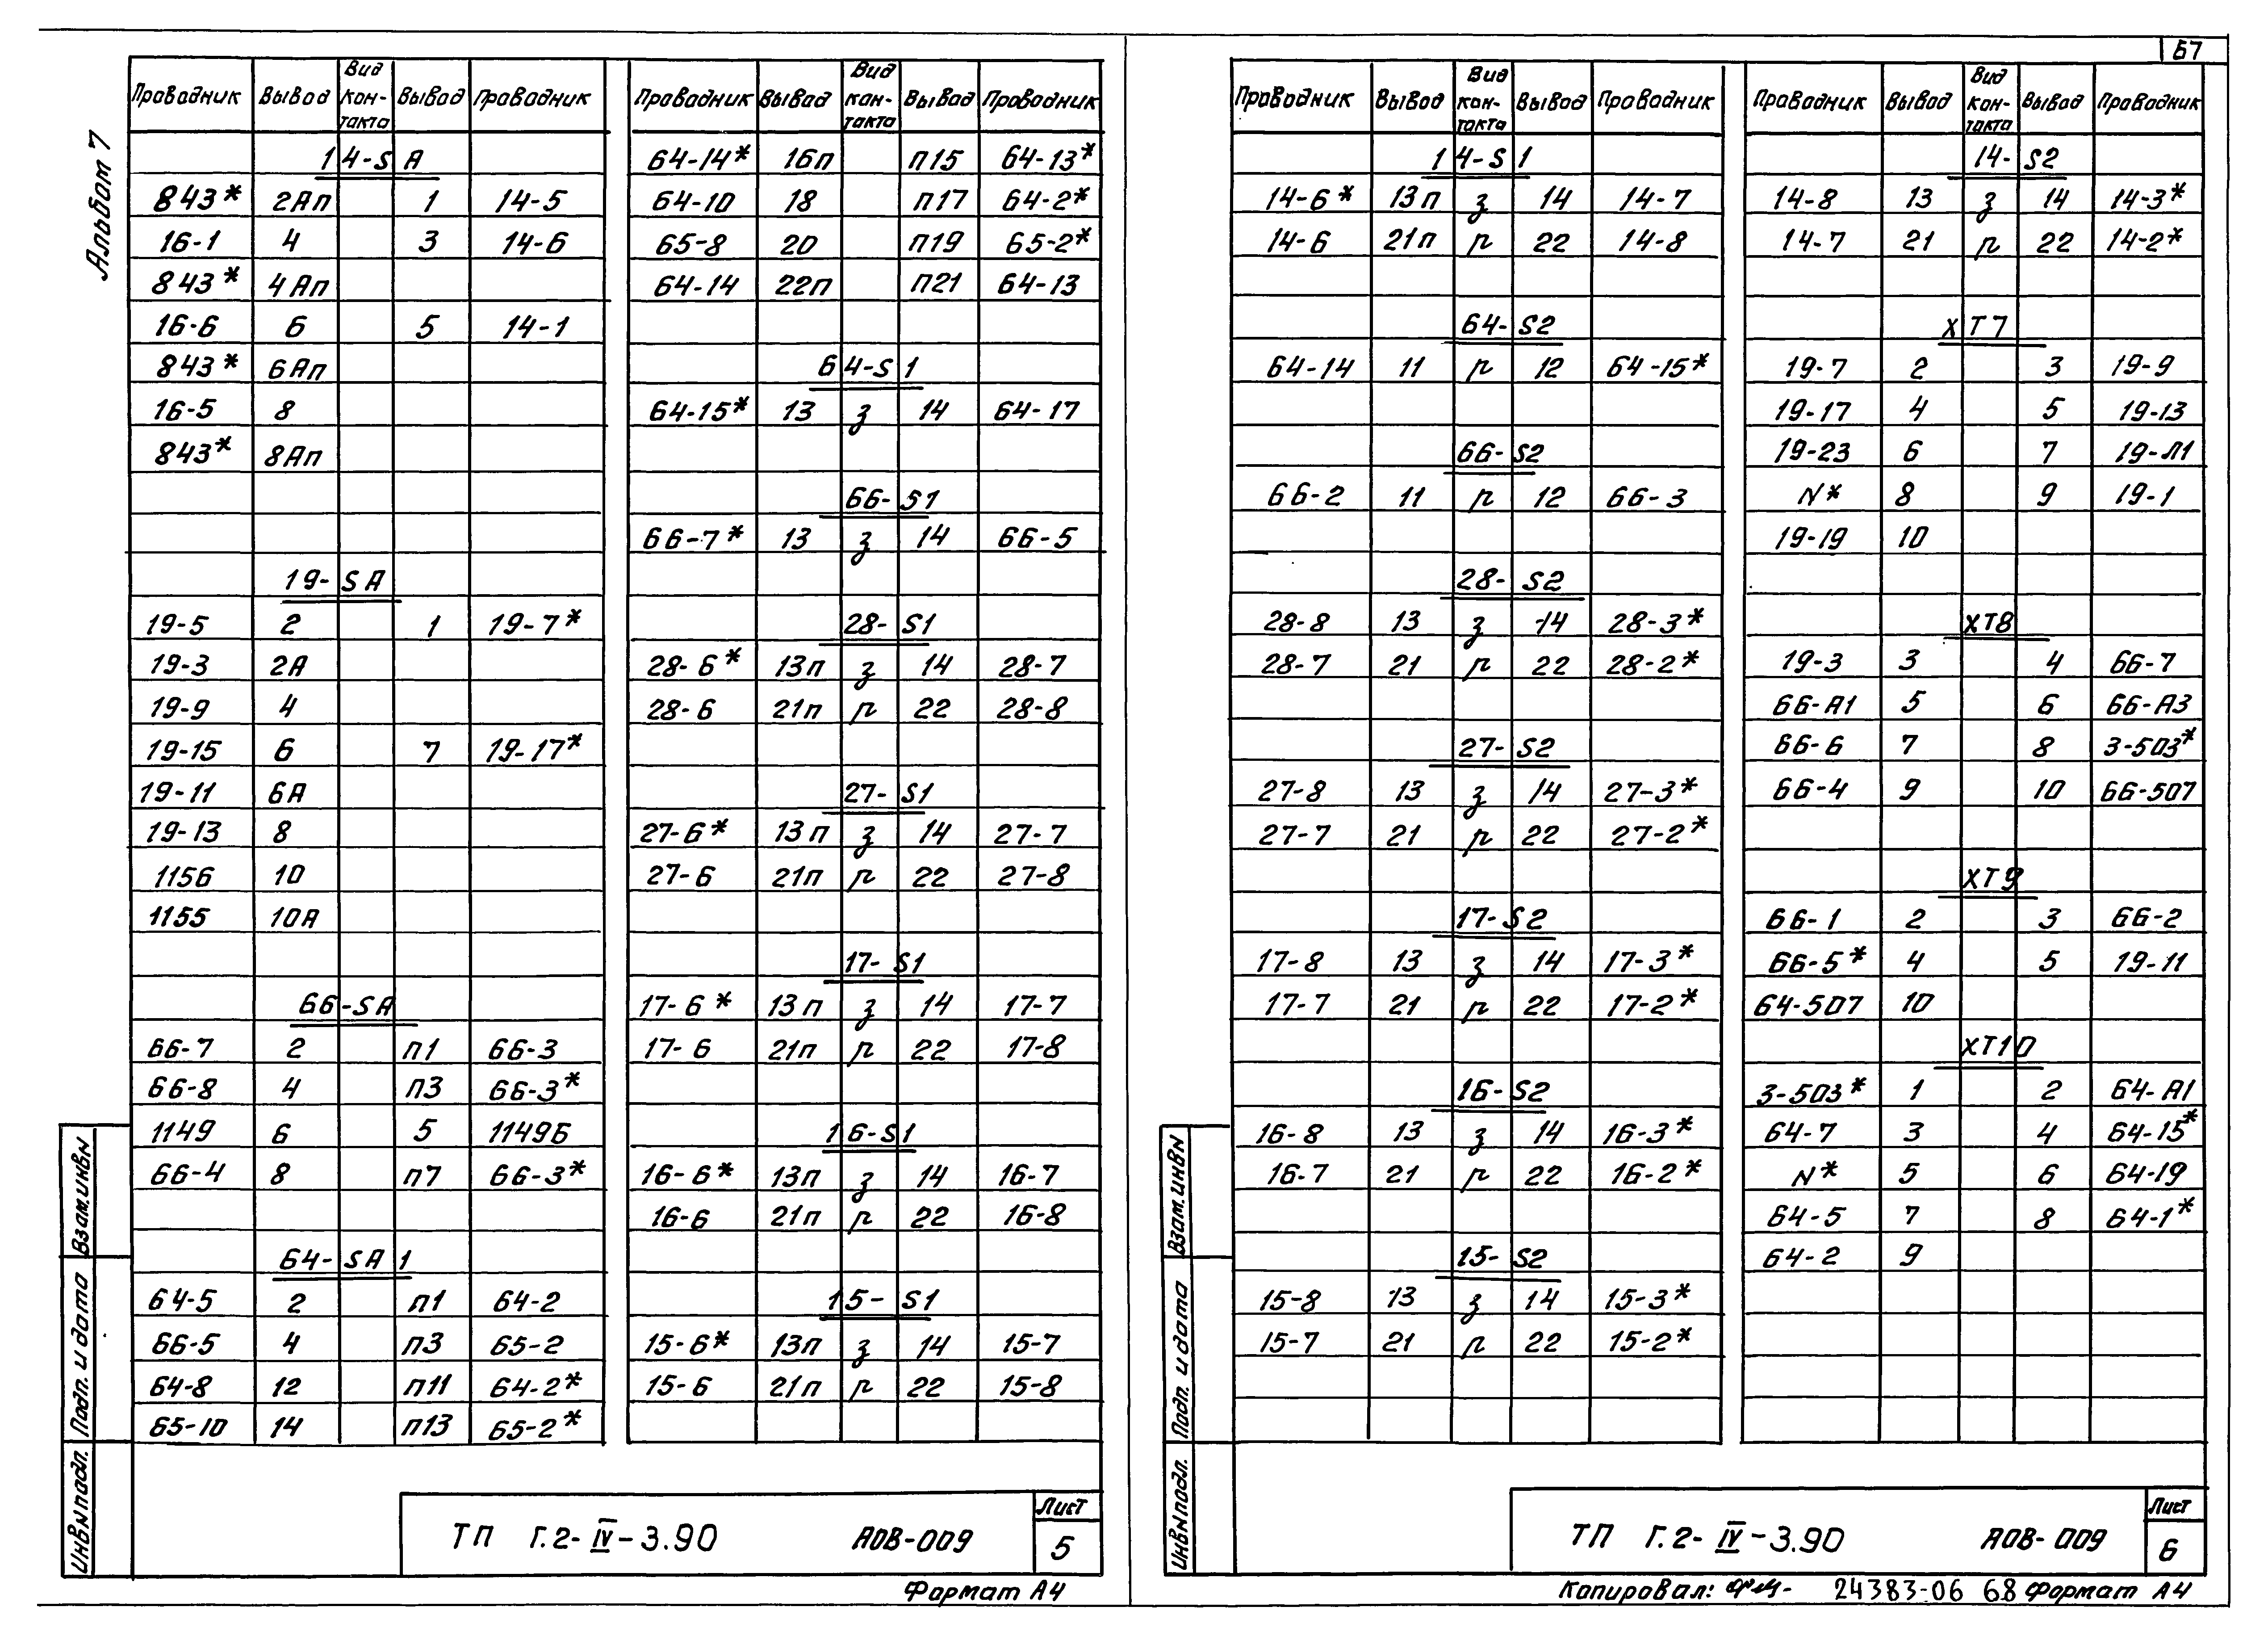 67
Альбом 7
Проводник Вывод Вид кон-такта Вывод Проводник
14-SA
843* 2Ап 1 14-5
16-1 4 3 14-6
843* 4Ап
16-6 6 5 14-1
843* 6Ап
16-5 8
843* 8Ап
19-SA
19-5 2 1 19-7*
19-3 2А
19-9 4
19-15 6 7 19-17*
19-11 6А
19-13 8
1156 10
1155 10А
66-SA
66-7 2 п1 66-3
66-8 4 п3 66-3*
1149 6 5 1149Б
66-4 8 п7 66-3*
64-SA1
64-5 2 п1 64-2
66-5 4 п3 65-2
64-8 12 п11 64-2*
65-10 14 п13 65-2*
Проводник Вывод Вид кон-такта Вывод Проводник
64-14* 16п п15 64-13*
64-10 18 п17 64-2*
65-8 20 п19 65-2*
64-14 22п п21 64-13
64-S1
64-15* 13 з 14 64-17
66-S1
66-7* 13 з 14 66-5
28-S1
28-6* 13п з 14 28-7
28-6 21п р 22 28-8
27-S1
27-6* 13п з 14 27-7
27-6 21п р 22 27-8
17-S1
17-6* 13п з 14 17-7
17-6 21п р 22 17-8
16-S1
16-6* 13п з 14 16-7
16-6 21п р 22 16-8
15-S1
15-6* 13п з 14 15-7
15-6 21п р 22 15-8
Взам.инвN
Подп. и дата
ИнвNподл.
ТП Г.2-IV-3.90 АОВ-009
Лист
5
Формат А4
Проводник Вывод Вид кон-такта Вывод Проводник
14-S1
14-6* 13п з 14 14-7
14-6 21п р 22 14-8
64-S2
64-14 11 р 12 64-15*
66-S2
66-2 11 р 12 66-3
28-S2
28-8 13 з 14 28-3*
28-7 21 р 22 28-2*
27-S2
27-8 13 з 14 27-3*
27-7 21 р 22 27-2*
17-S2
17-8 13 з 14 17-3*
17-7 21 р 22 17-2*
16-S2
16-8 13 з 14 16-3*
16-7 21 р 22 16-2*
15-S2
15-8 13 з 14 15-3*
15-7 21 р 22 15-2*
Проводник Вывод Вид кон-такта Вывод Проводник
14-S2
14-8 13 з 14 14-3*
14-7 21 р 22 14-2*
XT7
19-7 2 3 19-9
19-17 4 5 19-13
19-23 6 7 19-Л1
N* 8 9 19-1
19-19 10
XT8
19-3 3 4 66-7
66-А1 5 6 66-А3
66-6 7 8 3-503*
66-4 9 10 66-507
XT9
66-1 2 3 66-2
66-5* 4 5 19-11
64-507 10
XT10
3-503* 1 2 64-А1
64-7 3 4 64-15*
N* 5 6 64-19
64-5 7 8 64-1*
64-2 9
Взам.инвN
Подп. и дата
ИнвNподл.
ТП Г.2-IV-3.90 АОВ-009
Лист
6
Копировал: 24383-06 68 Формат А4